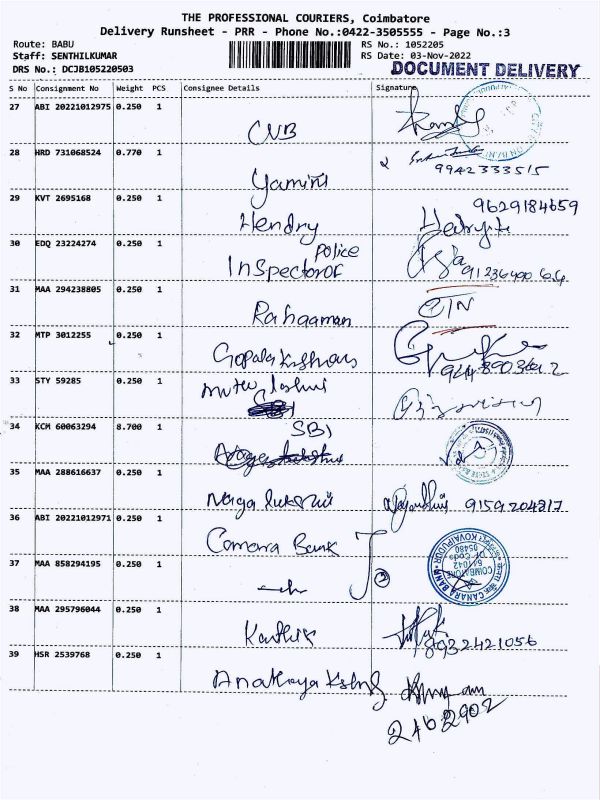 THE PROFESSIONAL COURIERS, Coimbatore
Delivery Runsheet - PRR - Phone No.:0422-3505555 - Page No.:3
Route: BABU RS No.: 1052205
Staff: SENTHILKUMAR RS Date: 03-Nov-2022
DRS No.: DCJB105220503 DOCUMENT DELIVERY
S No Consignment No Weight PCS Consignee Details Signature
27 ABI 20221012975 0.250 1
CUB
28 HRD 731068524 0.770 1
9942333515
Yamini
29 KVT 2695168 0.250 1 9629184659
Hendry
30 EDQ 23224274 0.250 1
Police
Inspector of
31 MAA 294238805 0.250 1
Rahaaman
32 MTP 3012255 0.250 1
33 STY 59285 0.250 1
34 KCM 60063294 8.700 1 SBI
35 MAA 288616637 0.250 1
9159204817
36 ABI 20221012971 0.250 1
Canara Bank
37 MAA 858294195 0.250 1
2
CANARA BANK
COIMBATORE
641042
38 MAA 295796044 0.250 1
Karthik 8932421056
39 HSR 2539768 0.250 1
2462902